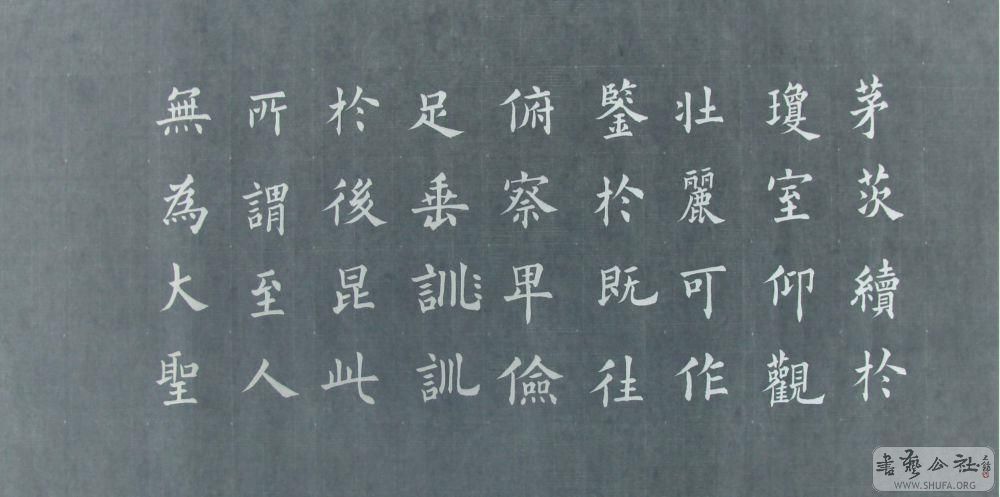 茅茨續於
瓊室仰觀
壯麗可作
鑒於既往
俯察卑儉
足垂訓訓
於後昆此
所謂至人
無為大聖
書藝公社
WWW.SHUFA.ORG